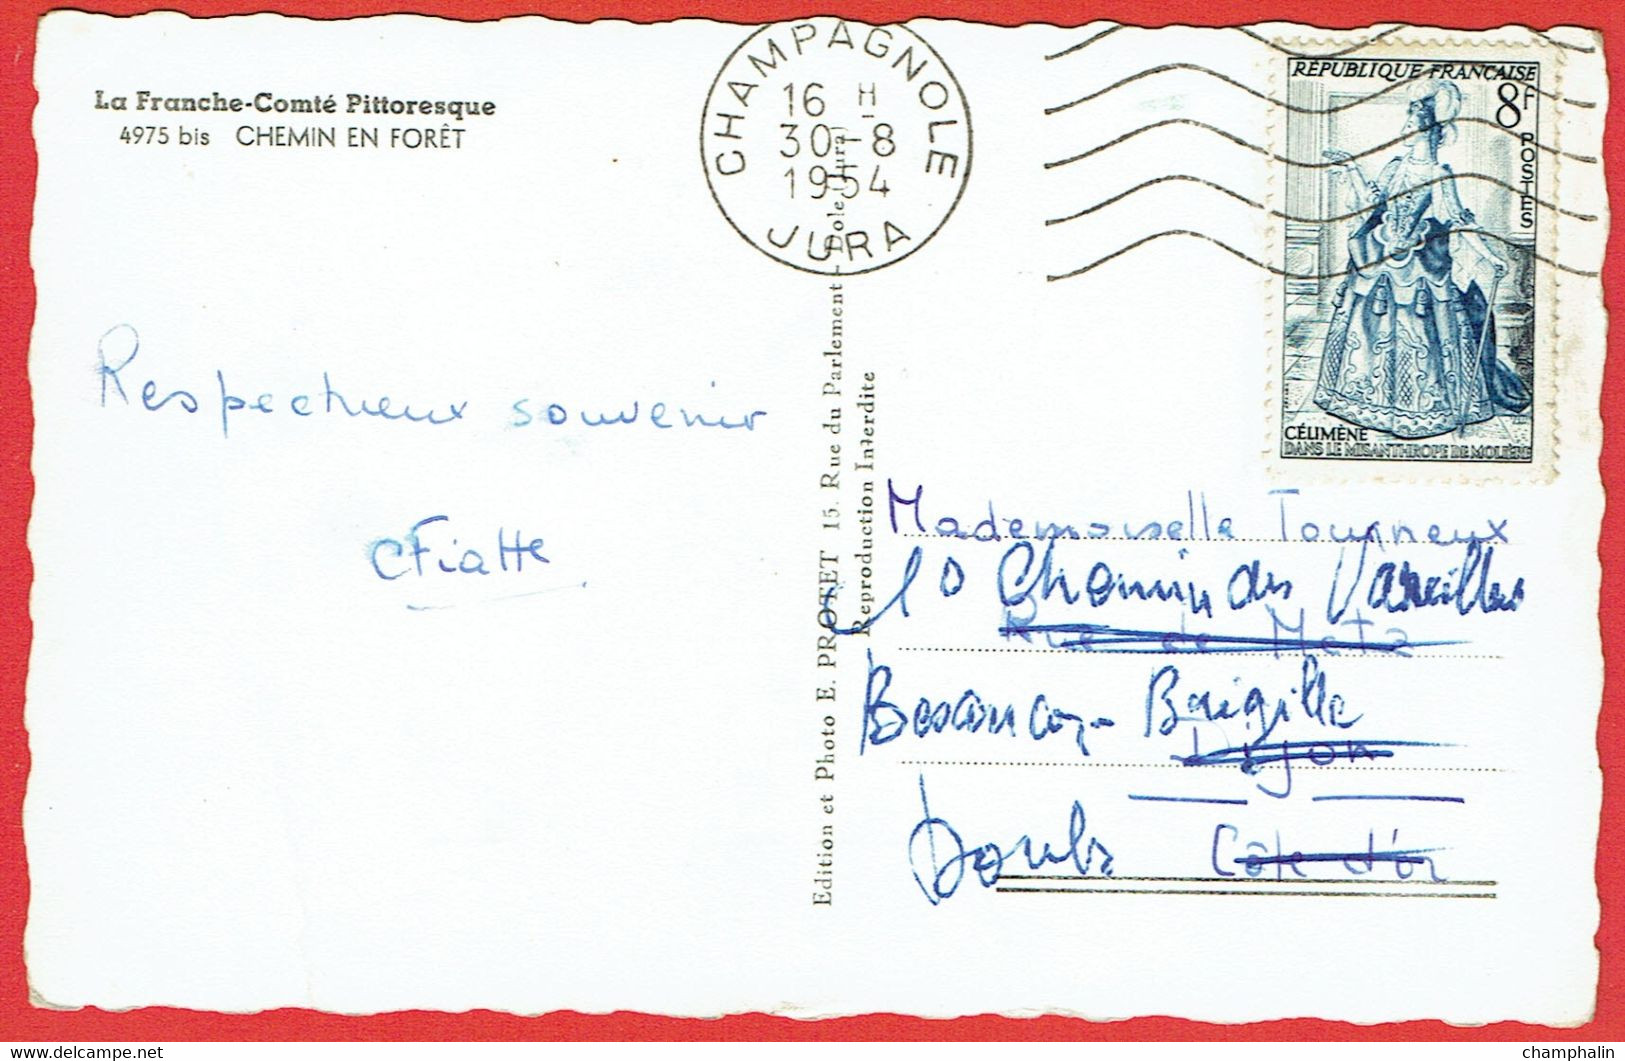 La Franche-Comté Pittoresque
4975 bis CHEMIN EN FORÊT
CHAMPAGNOLE
16 H
30-8
1954
JURA
RÉPUBLIQUE FRANÇAISE
8F
POSTES
CÉLIMÈNE
DANS LE MISANTHROPE DE MOLIÈRE
Respectueux souvenir
CFiatte
Edition et Photo E. PROTET 15. Rue du Parlement - Dole (Jura)
Reproduction Interdite
Mademoiselle Tourneux
10 Chemin des Vareilles
Rue de Metz
Besançon - Brégille
Dijon
Doubs Côte d'Or
https://www.delcampe.net
champhalin